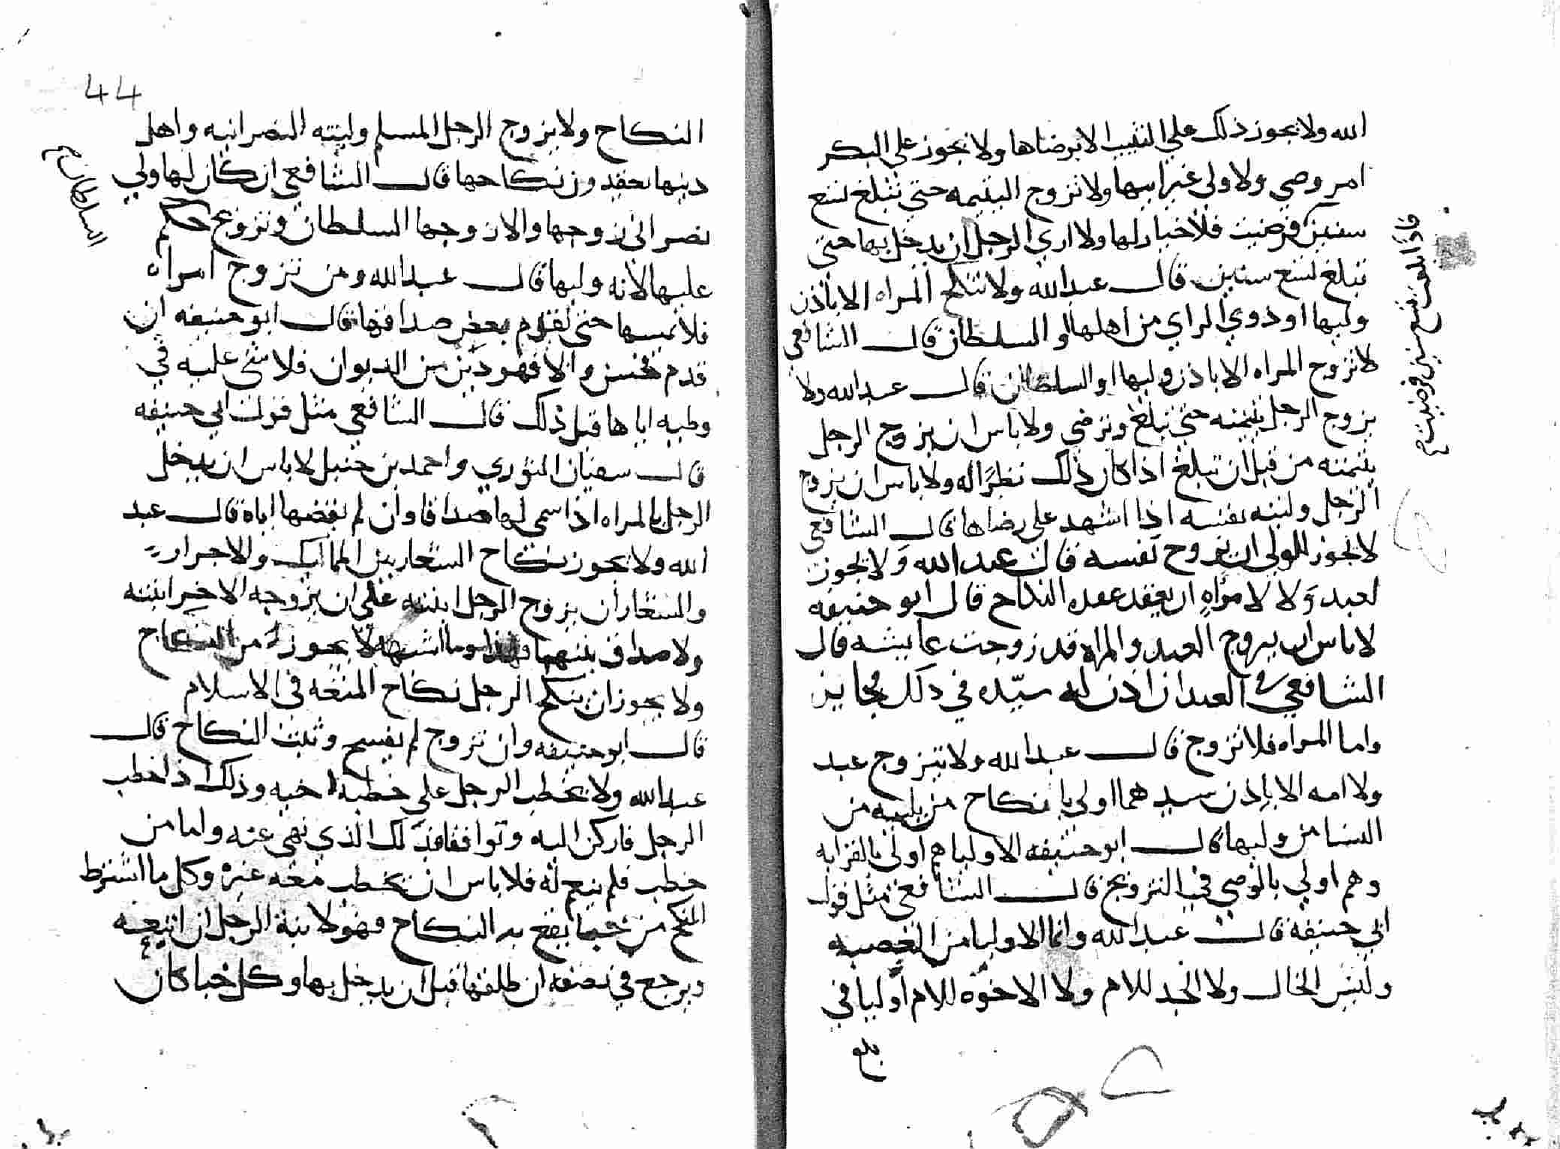 الله ولا يجوز ذلك علي الثيب الا برضاها ولا يجوز علي البكر
امر وصي ولا ولي غير ابيها ولا تزوج اليتيمه حتي تبلغ تسع
سنين فرضيت فلا خيار لها ولا اري الرجل ان يدخل بها حتي
تبلغ تسع سنين قال عبد الله ولا تنكح المراه الا باذن
وليها او ذوي الراي من اهلها او السلطان قال الشافعي
لا تزوج المراه الا باذن وليها او السلطان قال عبد الله ولا
يزوج الرجل يتيمته حتي تبلغ وترضي ولا باس ان يزوج الرجل
يتيمته من قبل ان تبلغ اذا كان ذلك نظرًا له ولا باس ان يزوج
الرجل وليته نفسه اذا اشهد علي رضاها قال الشافعي
لا يجوز للولي ان يزوج نفسه قال عبد الله ولا يجوز
لعبد ولا لامراه ان يعقد عقده النكاح قال ابو حنيفه
لا باس ان يزوج العبد والمراه قد زوجت عايشه قال
الشافعي العبد ان اذن له سيّده في ذلك فجايز
واما المراه فلا تزوج قال عبد الله ولا يتزوج عبد
ولا امه الا باذن سيدهما اولي بانكاح من يليه من
النسا من وليها قال ابو حنيفه الاوليا هم اولي بالقرابه
وهم اولي بالوصي في التزويج قال الشافعي مثل قول
ابي حنيفه قال عبد الله وانما الاوليا من العصبه
وليس الخال ولا الجد للام ولا الاخوه للام اوليا في
بلغ
فاذا بلغت تسع سنين فرضيت
44
النكاح ولا يزوج الرجل المسلم وليته النصرانيه واهل
دينها يعقدون نكاحها قال الشافعي ان كان لها ولي
نصراني زوجها والا زوجها السلطان وتزوج حكم
عليها لا انه وليها قال عبد الله ومن تزوج امراه
فلا يمسها حتي يقدم بعض صداقها قال ابو حنيفه ان
قدم فحسن والا فهو دين من الديون فلا شي عليه في
وطيه اياها قبل ذلك قال الشافعي مثل قول ابي حنيفه
قال سفيان الثوري واحمد بن حنبل لا باس ان يدخل
الرجل بالمراه اذا سمي لها صداقا وان لم يقبضها اياه قال عبد
الله ولا يجوز نكاح الشغار بين المماليك والاحرار
والشغار ان يزوج الرجل ابنته علي ان يزوجه الاخر ابنته
ولا صداق بينهما فهذا وما اشبهه لا يجوز له من النكاح
ولا يجوز ان ينكح الرجل نكاح المتعه في الاسلام
قال ابو حنيفه وان تزوج لم يفسخ وثبت النكاح قال
عبد الله ولا يخطب الرجل علي خطبة اخيه وذلك اذا خطب
الرجل فاركن اليه وتوافقا فذلك الذي نهي عنه واما من
خطب فلم ينعم له فلا باس ان يخطب معه غيره وكل ما اشترط
المنكح من حبا يقع به النكاح فهو لابنة الرجل ان اتبعته
ويرجع في نصفه ان طلقها قبل ان يدخل بها وكل حبا كان
السلطان